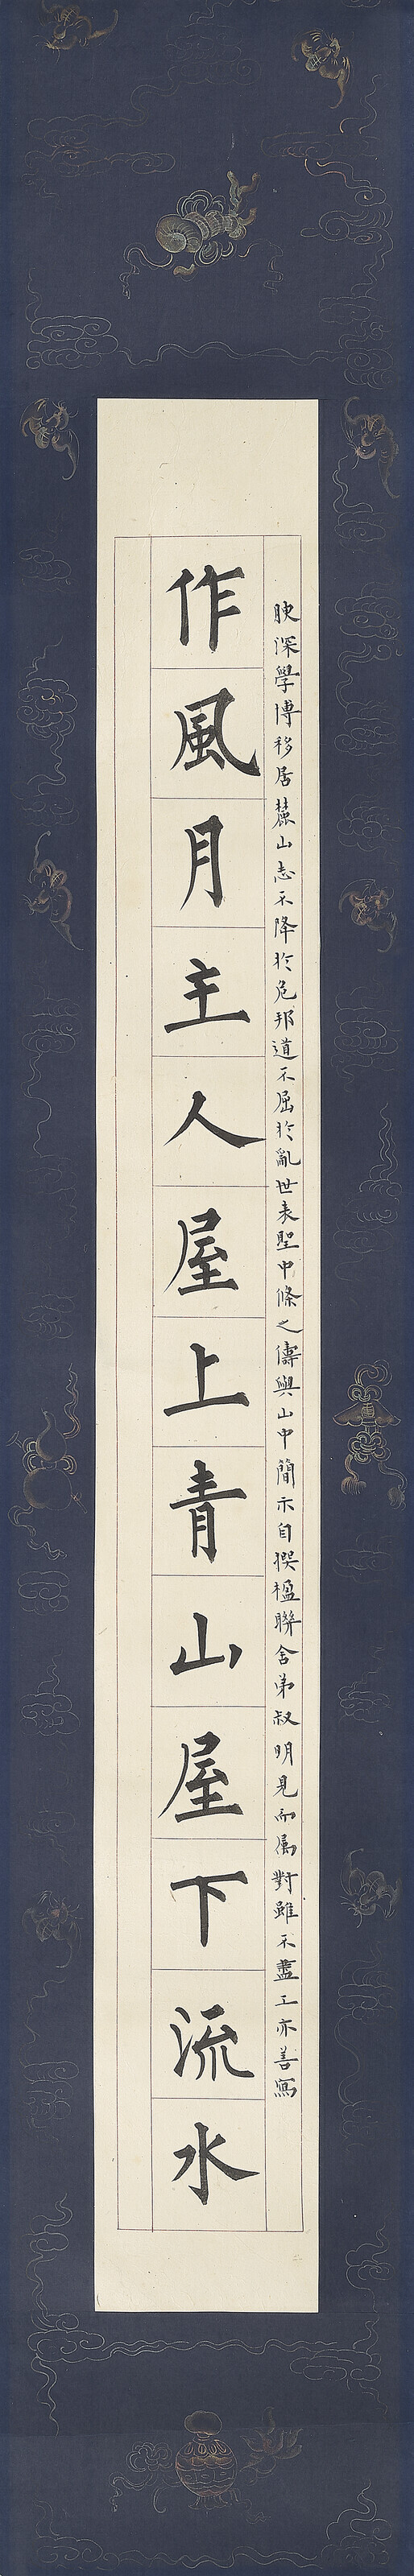 腴深學博移居麓山志不降於危邦道不屈於亂世表聖中條之儔與山中簡示自撰楹聯舍弟叔明見而属對雖不盡工亦善寫
作風月主人屋上青山屋下流水